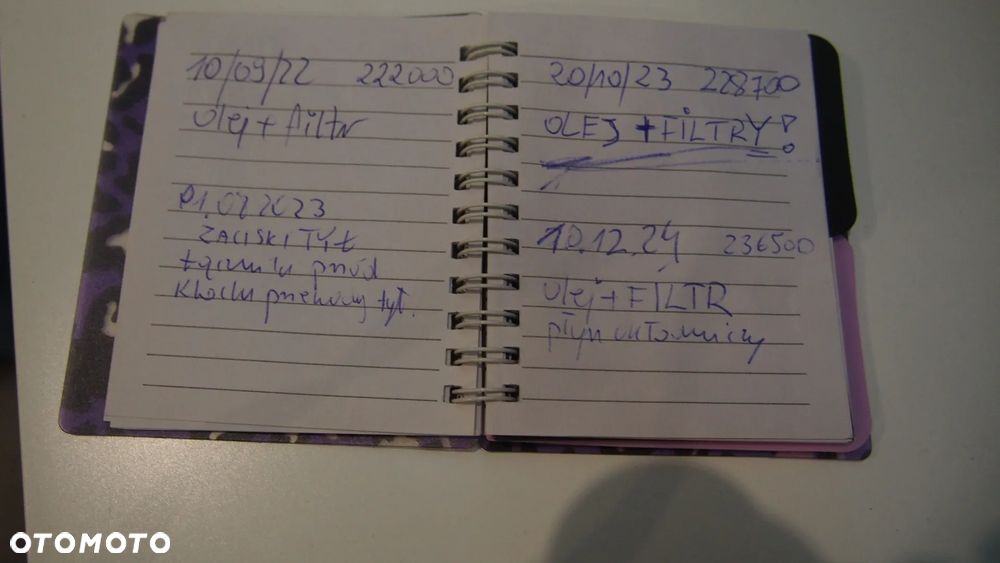 10/09/22 222000
olej + filtr
01.02 2023
ZACISKI TYŁ
Łączniki przód
Klocki przewody tył.
20/10/23 228700
OLEJ + FILTRY!
10.12.24 236500
olej + FILTR
płyn
OTOMOTO